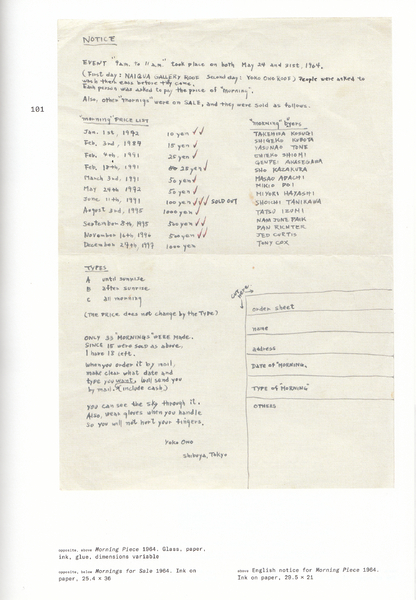 101
NOTICE
EVENT "9 a.m. to 11 a.m." took place on both May 24 and 31st, 1964.
(First day: NAIQUA GALLERY ROOF Second day: YOKO ONO ROOF) People were asked to
wash their ears before they came.
Each person was asked to pay the price of "morning".
Also, other "mornings" were on SALE, and they were sold as follows.
"morning" PRICE LIST
Jan. 1st, 1972 10 yen
Feb. 3rd, 1987 15 yen
Feb. 4th, 1991 25 yen
Feb. 1991 25 yen
March 3rd, 1991 50 yen
May 24th, 1972 50 yen
June 11th, 1991 100 yen SOLD OUT
August 2nd, 1995 1000 yen
September 1995 500 yen
November 16th, 1990 500 yen
December 27th, 1997 1000 yen
"morning" buyers
TAKEHISA KOSUGI
SHIGEKO KUBOTA
YASUNAO TONE
CHIEKO SHIOMI
GENPEI AKASEGAWA
SHO KAZAKURA
MASAO ADACHI
MIKIO DOI
MIYORI HAYASHI
SHOICHI TANIKAWA
YATSU IZUMI
NAM JUNE PAIK
DAN RICHTER
JED CURTIS
TONY COX
TYPES
A until sunrise
B after sunrise
C all morning
(THE PRICE does not change by the TYPE)
ONLY 33 "MORNINGS" WERE MADE.
SINCE 18 were sold as above,
I have 15 left.
when you order it by mail,
make clear what date and
type you want. I will send you
by mail. (include cash)
you can see the sky through it.
Also, wear gloves when you handle
so you will not hurt your fingers.
Yoko Ono
Shibuya, Tokyo
order sheet
name
address
DATE OF "MORNING"
TYPE OF "MORNING"
OTHERS
opposite, above Morning Piece 1964. Glass, paper,
ink, glue, dimensions variable
opposite, below Mornings for Sale 1964. Ink on
paper, 25.4 × 36
above English notice for Morning Piece 1964.
Ink on paper, 29.5 × 21